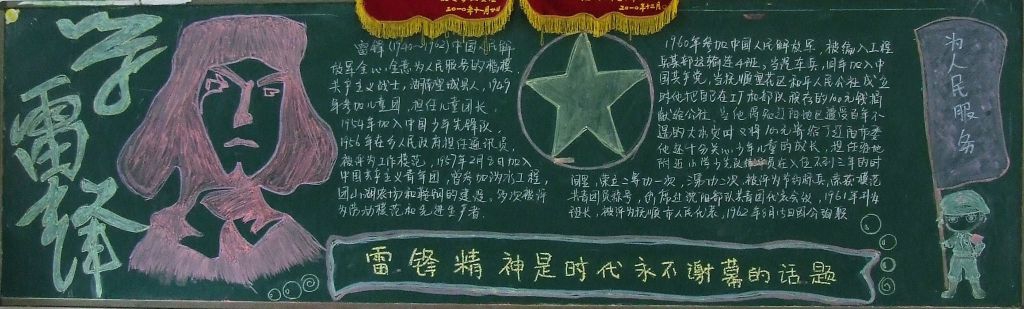 学
雷
锋
雷锋(1940~1962)中国人民解
放军全心全意为人民服务的楷模,
共产主义战士,湖南望城县人,1949
年参加儿童团,担任儿童团长,
1954年加入中国少年先锋队,
1956年在乡人民政府担任通讯员,
被评为工作模范,1957年2月8日加入
中国共产主义青年团,曾参加沩水工程,
团山湖农场和鞍钢的建设,多次被评
为劳动模范和先进生产者.
1960年参加中国人民解放军,被编入工程
兵某部运输连4班,当汽车兵,同年加入中
国共产党,当抚顺望花区和平人民公社成立
时他把自己在工厂和部队积存的100元钱捐
献给公社,当他得知辽阳地区遭受百年不
遇的大水灾时又将100元寄给了辽阳市委
他还十分关心少年儿童的成长,担任驻地
附近小学少先队辅导员在入伍不到三年的时
间里,荣立二等功一次,三等功二次,被评为节约标兵,荣获模范
共青团员称号,出席过沈阳部队共青团代表会议,1961年升为
班长,被评为抚顺市人民代表,1962年8月15日因公殉职
为人民服务
雷锋精神是时代永不谢幕的话题